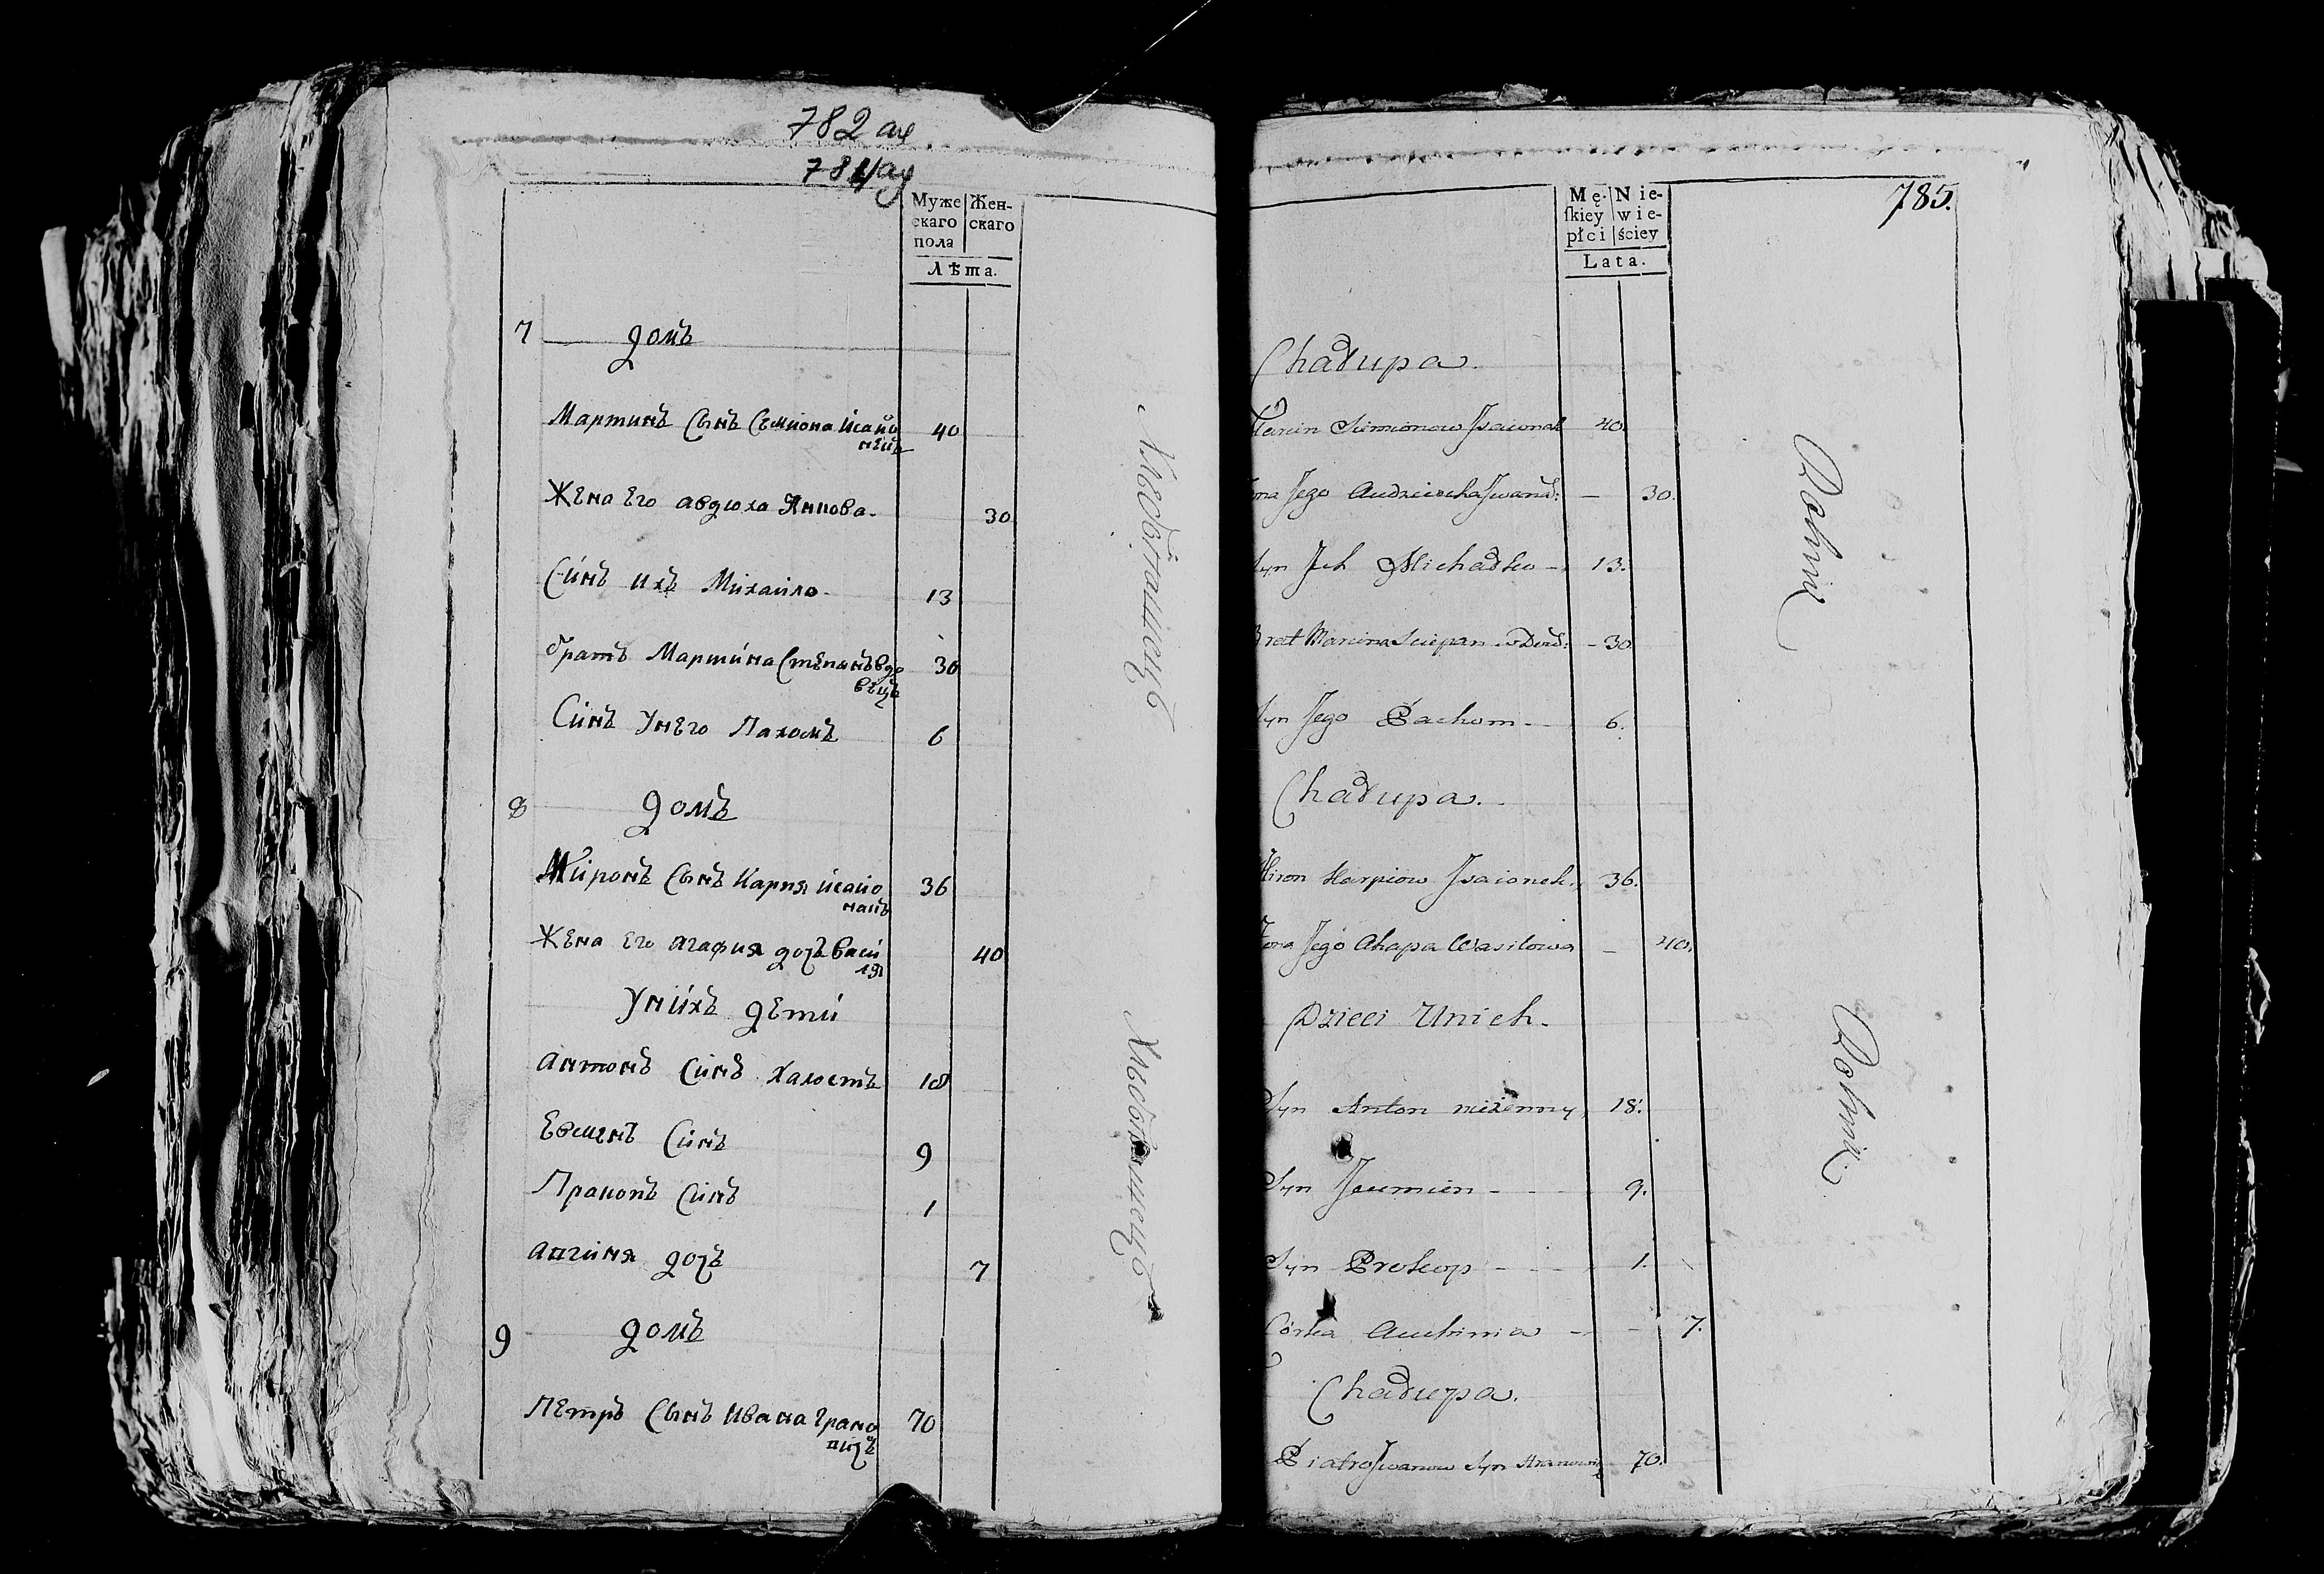 782 об
784 об
Муже
скаго
пола
Жен-
скаго
Лѣта.
7 домъ
Мартинъ Сынъ Сѣмиона Исайо 40
нѣкъ
Жена Его авдюха Янкова. 30
Синъ ихъ Михайло. 13
братъ Мартина Степанъ вдо 30
вецъ
Синъ Унего Пахомъ 6
8 домъ
Миронъ Сынъ Карпя исайо 36
накъ
Жена Его агафия дочъ Васи 40
ля
Унихъ дети
антонъ Синъ Халостъ 18
Евменъ Синъ 9
Пракопъ Синъ 1
дочъ 7
9 домъ
Петръ Сынъ Ивана 70
Хлебопашецъ
Хлебопашецъ
785.
Mę-
ſkiey
płci
Nie-
wie-
ściey
Lata.
Chałupa.
Marcin Siemionow Jsaionek 40.
Jego Jwanowa: — 30.
Syn Jch Michałko — 13.
Brat Marcina Sciepan wDow: — 30
Syn Jego Pachom — 6.
Chałupa.
Miron Karpiow Jsaionek. 36.
Żona Jego Ahapa Wasilowa — 40.
Dzieci Unich.
Syn Anton nieżenny 18.
Syn Jeumien — 9.
Syn Prokop — 1.
Córka Auchinia — 7.
Chałupa.
Piatro Jwanow Syn 70.
Rolnik
Rolnik.